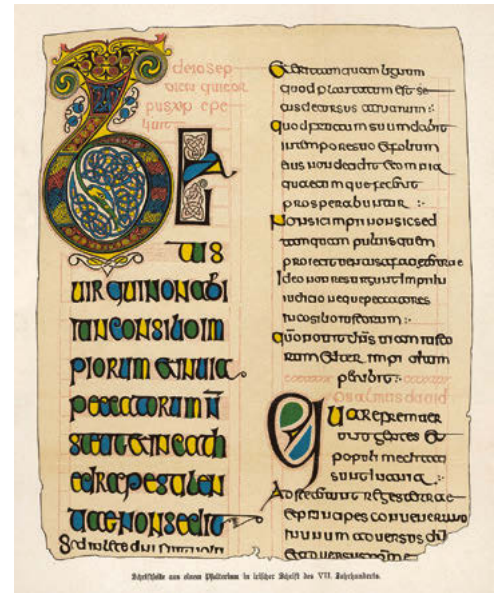 B
EA
TUS
UIR QUI NON ABI
IT IN CONSILIO IM
PIORUM & IN UIA
PECCATORUM N̄
STETIT & IN CATH
EDRA PESTILEN
TIAE NON SEDIT
Sed in lege dni
& erit tamquam lignum
quod plantatum est se
cus decursus aquarum :·
quod fructum suum dabit
in tempore suo & folium
eius non decidet & omnia
quaecumque faciet
prosperabuntur :·
Non sic impii non sic sed
tamquam puluis quem
proiecit uentus a facie terrae
Ideo non resurgunt impii in
iudicio neque peccatores
iustorum :·
quō nouit dn̄s uiam iusto
rum & iter
psalmus dauid
Quare fremuer
unt gentes &
populi meditati
sunt inania :·
reges terrae
& principes conuenerunt
in unum aduersus
& aduersus
Schriftseite aus einem Psalterium in irischer Schrift des VII. Jahrhunderts.